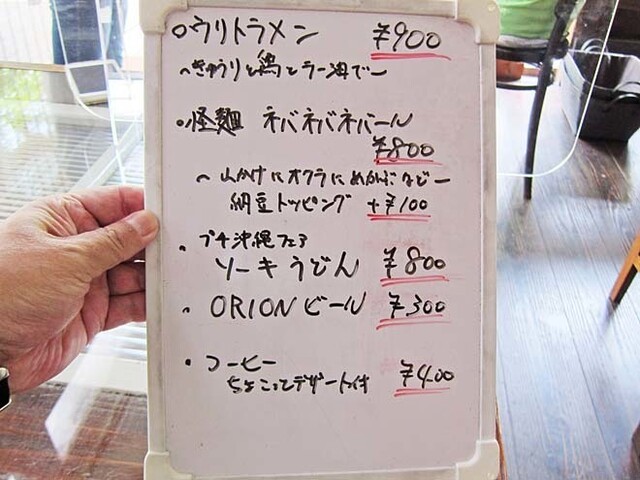 ウリトラメン ¥900
〜きゅうりと鶏とラー油で〜
怪麺 ネバネバネバール
¥800
〜山かけにオクラにめかぶなど〜
納豆トッピング +¥100
プチ沖縄フェア
ソーキうどん ¥800
ORIONビール ¥300
コーヒー
ちょこっとデザート付 ¥400